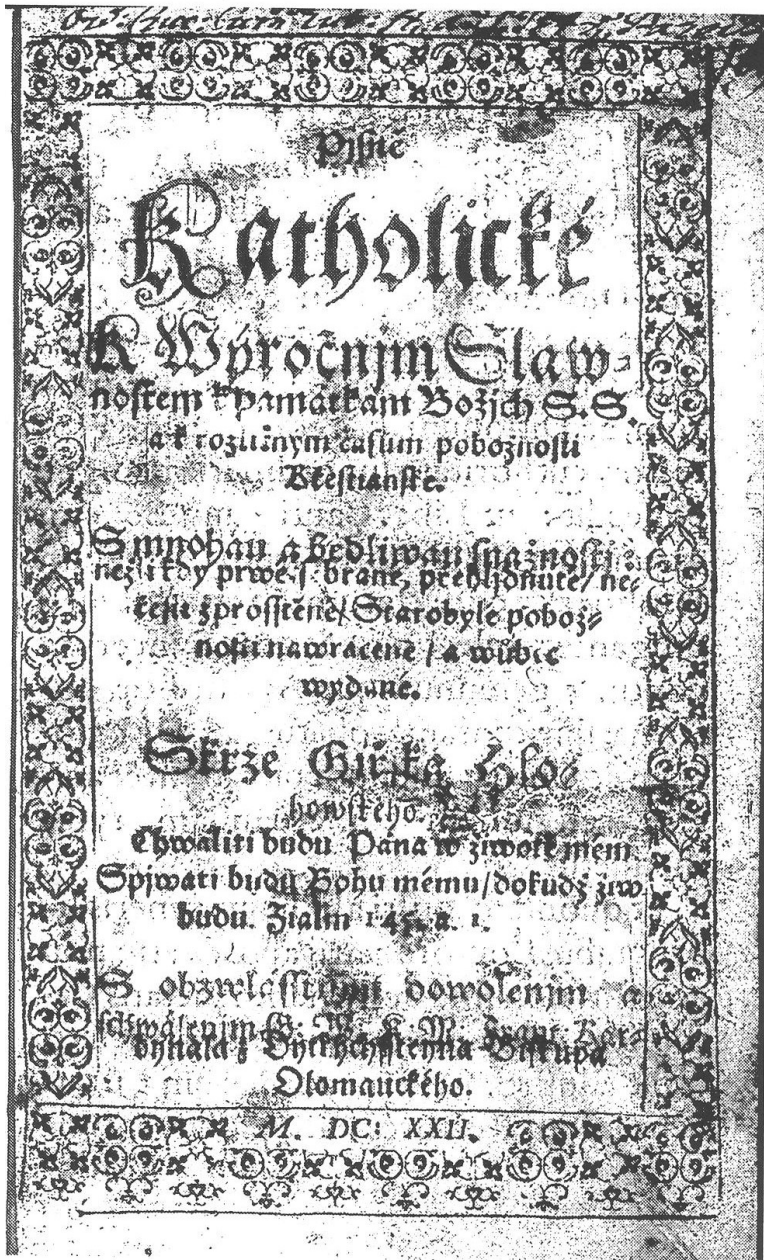 Pjsně
Katholické
K Weyročnjm Slaw-
nostem k pamatkam Božjch S.S.
a k rozličnym časum pobožnosti
Křestianske.
S mnohau a bedliwau snažnosti
než li kdy prwé s. brané, přehljdnuté/ ne-
zprosstěné/ Starobyle pobož-
nosti nawracené / a wůbec
wydané.
Skrze Giřjka Hlo-
howského.
Chwaliti budu Pana w žiwotě mém
Spjwati budu Bohu mému/ dokudž žiw
budu. Žialm 145. a. 1.
S obzwlásstnjm dowolenjm a
schwálenjm G. M. K. M. Frant: Kar-
dynala z Dytrychsteyna Biskupa
Olomauckého.
M. DC: XXII.